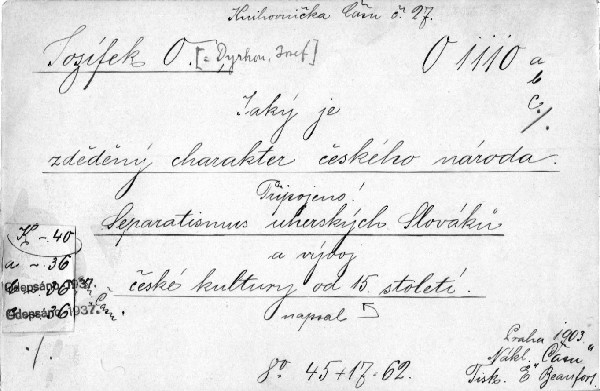 Knihovnička Času č. 27.
Jozífek O. [= Dyrhon, Josef]
O 1110 a
b
c ./.
Jaký je
zděděný charakter českého národa.
Připojeno!
Separatismus uherských Slováků
a vývoj
české kultury od 15 století.
napsal
K – 40
a – 36
b – 36
c – 36
Odepsáno 1937.
Odepsáno 1937.
Čas.
./.
8º 45+17-62.
Praha 1903.
Nákl. "Času"
Tisk. E. Beaufort